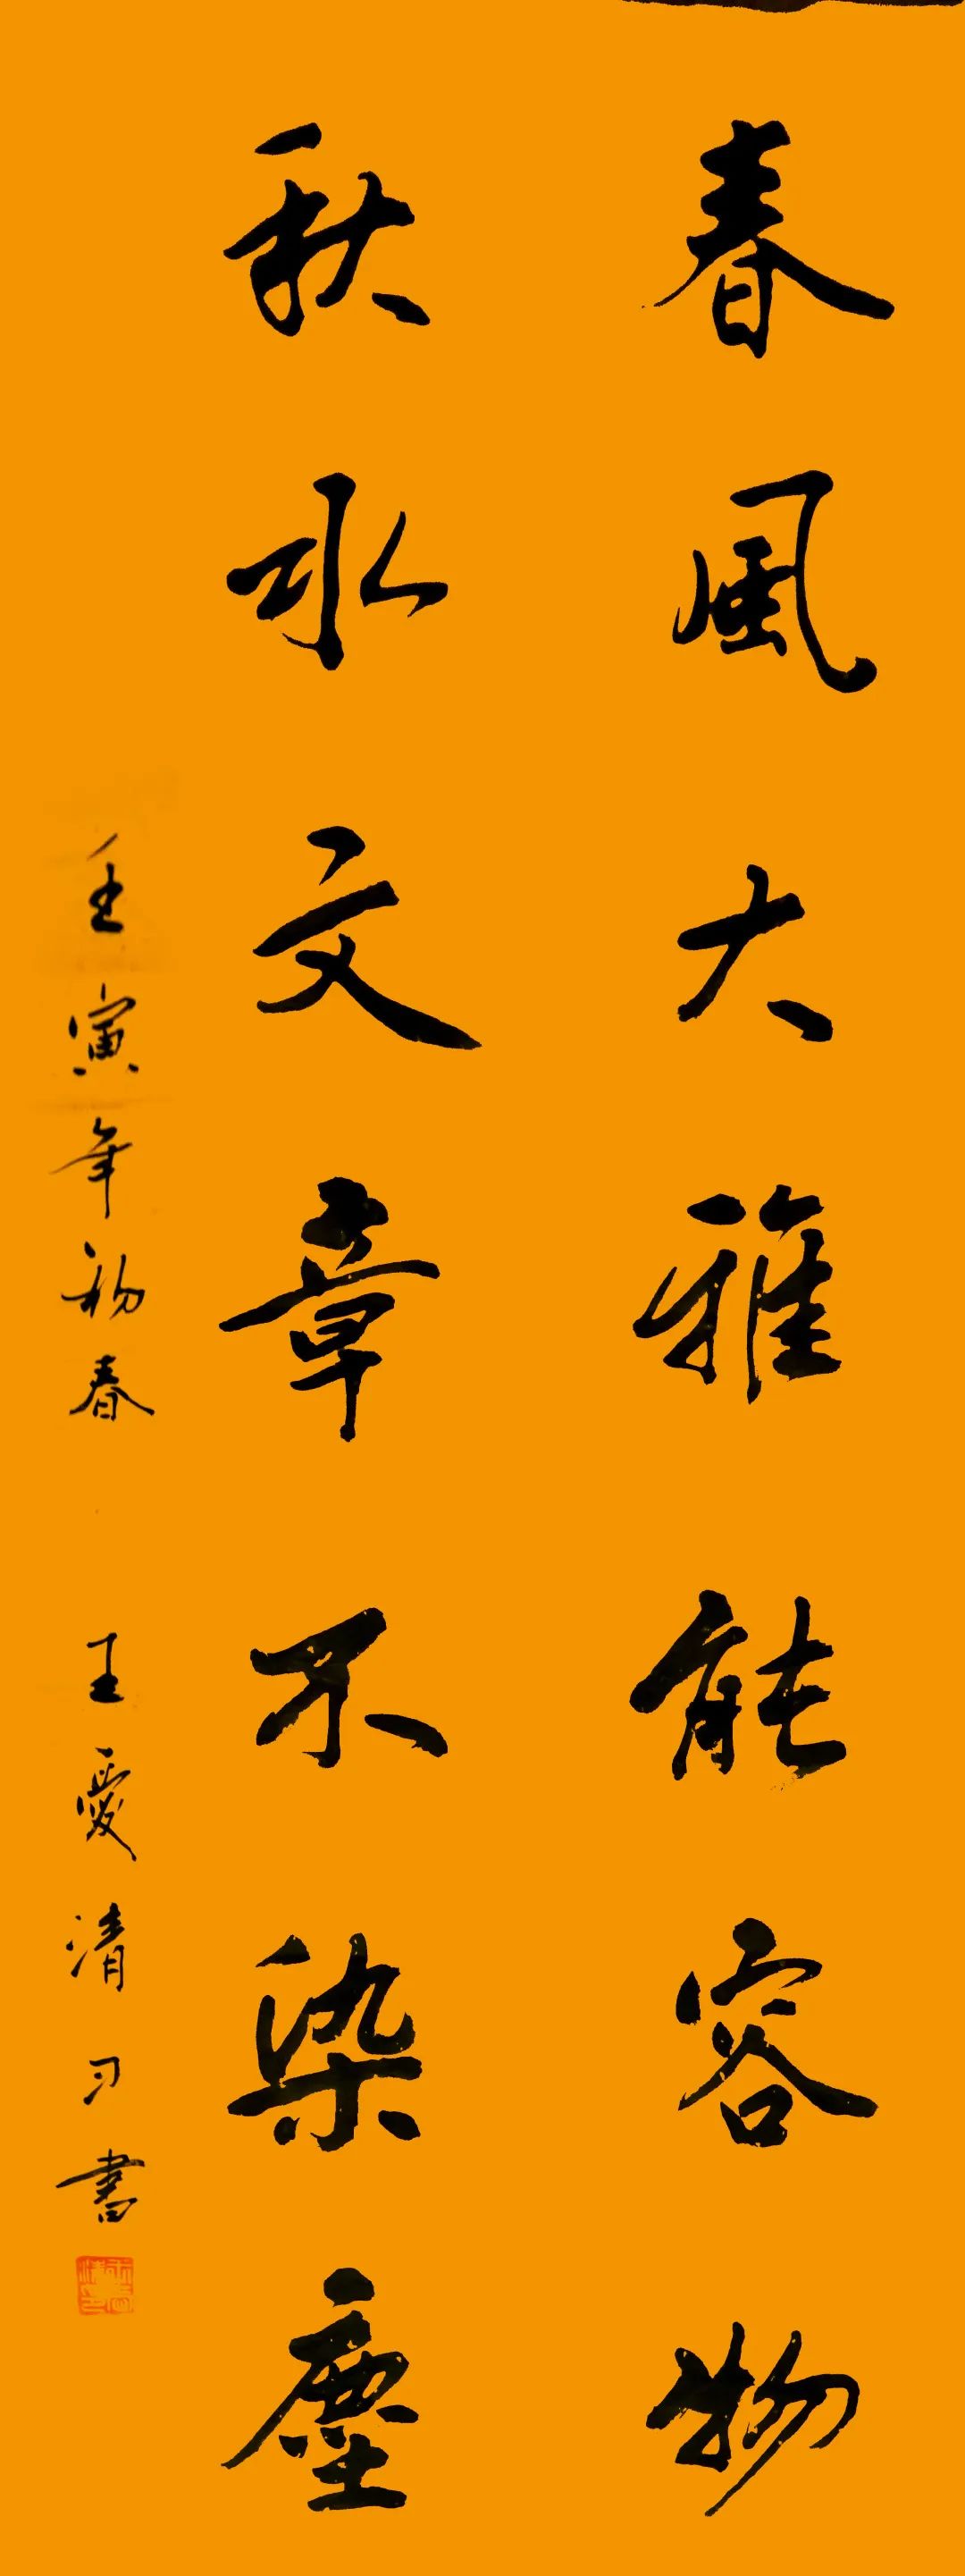 春風大雅能容物
秋水文章不染塵
壬寅年初春 王愛清习書